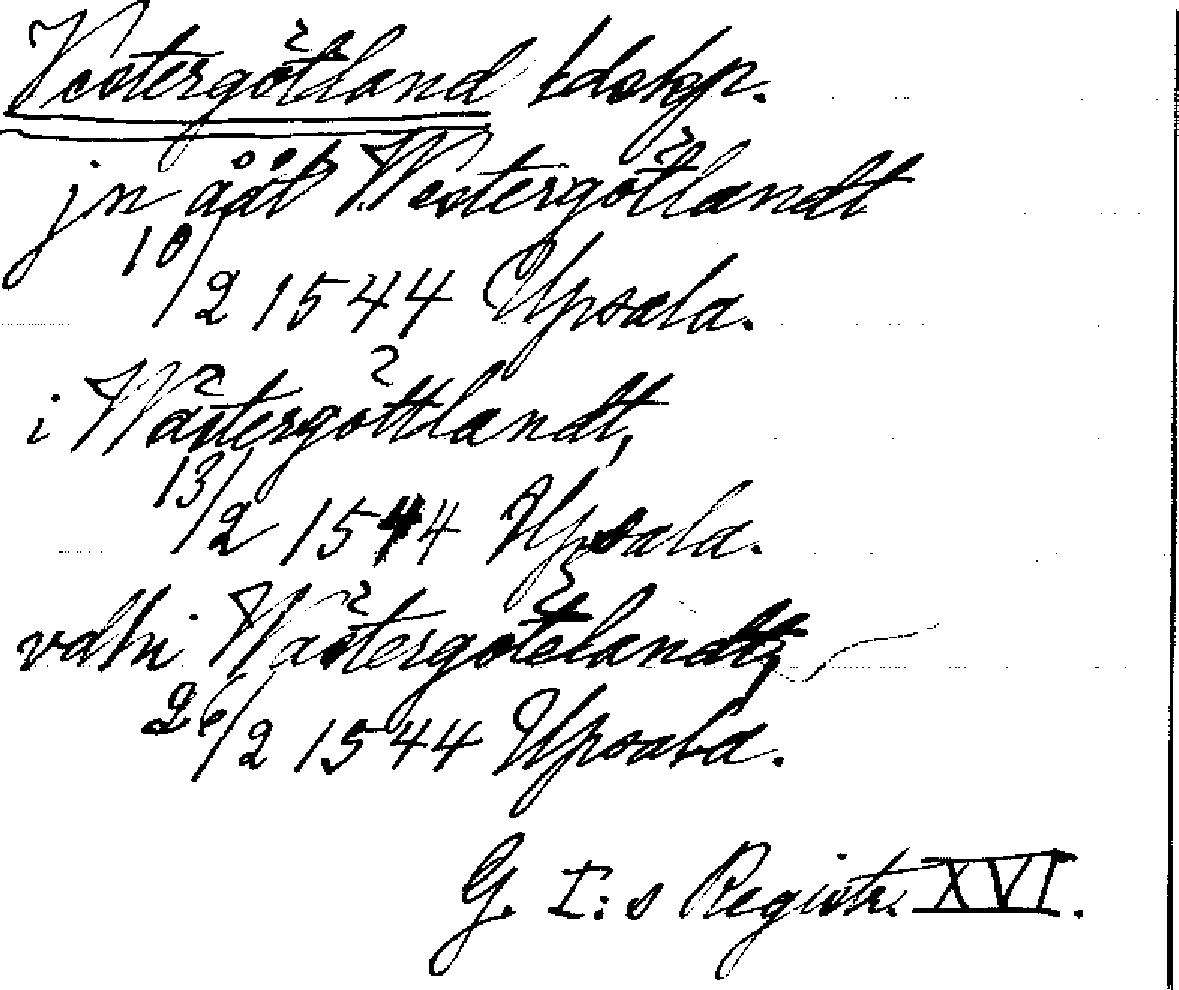 Vestergötland ldskp.
jn ååt Westergötlandt
10/2 1544 Upsala.
i Wästergöttlandt,
13/2 1544 Upsala.
vdhi Wästergötelandt,
26/2 1544 Upsala.
G. I:s Registr. XVI.